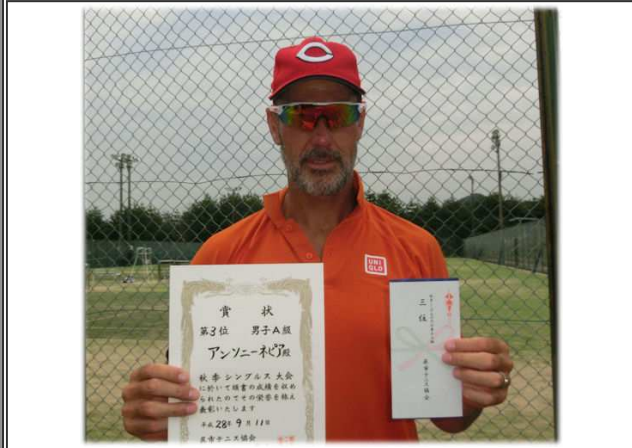 C
UNI
QLO
賞状
第3位 男子A級
アンソニーネピア殿
秋季シングルス大会
に於いて頭書の成績を収め
られたのでその栄誉を称え
表彰いたします
平成28年9月11日
呉市テニス協会
三位
呉市テニス協会